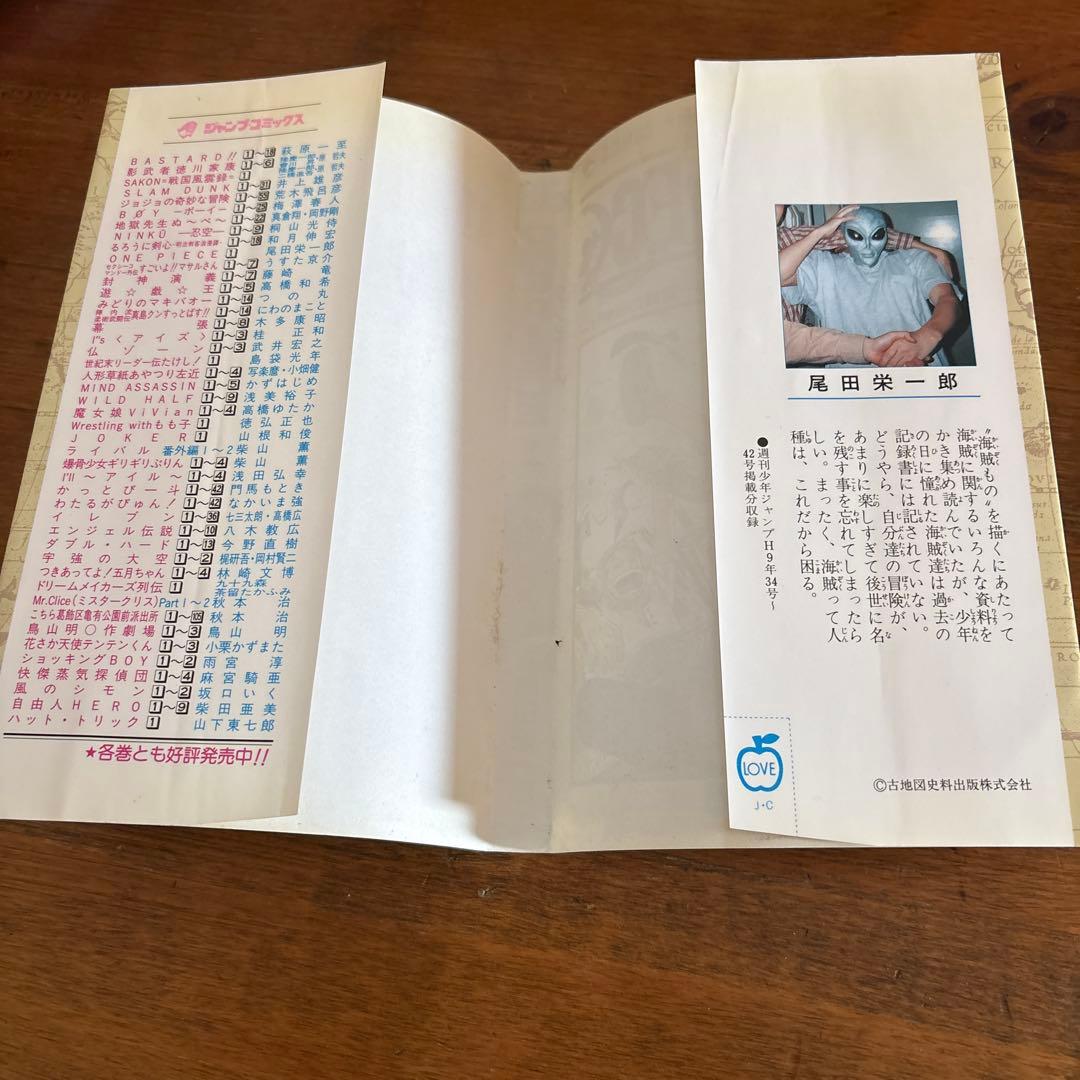 ジャンプ・コミックス
BASTARD!! 1〜18 萩原一至
影武者徳川家康 1〜6
SAKON=戦国風雲録= 1
SLAM DUNK 1〜31 井上雄彦
ジョジョの奇妙な冒険 荒木飛呂彦
BØY —ボーイ— 梅澤春人
地獄先生ぬ〜べ〜 1〜22 真倉翔・岡野剛
NINKŪ —忍空— 1〜9 桐山光侍
るろうに剣心-明治剣客浪漫譚- 1〜18 和月伸宏
ONE PIECE 1 尾田栄一郎
セクシーコマンドー外伝 すごいよ!!マサルさん 1〜7 うすた京介
封神演義 1〜7 藤崎竜
遊☆戯☆王 1〜5 高橋和希
みどりのマキバオー 1〜14 つの丸
陣内流柔術武闘伝 真島クンすっとばす!! 1〜14 にわのまこと
幕張 1〜8 木多康昭
I"s〈アイズ〉 1〜3 桂正和
仏ゾーン 1〜3 武井宏之
世紀末リーダー伝たけし! 1 島袋光年
人形草紙あやつり左近 1〜4 写楽麿・小畑健
MIND ASSASSIN 1〜5 かずはじめ
WILD HALF 1〜9 浅美裕子
魔女娘ViVian 1〜4 高橋ゆたか
Wrestling withもも子 1 徳弘正也
JOKER 1 山根和俊
ライバル 番外編1〜2 柴山薫
爆骨少女ギリギリぷりん 1〜4 柴山薫
I'll 〜アイル〜 1〜4 浅田弘幸
かっとび一斗 1〜42 門馬もとき
わたるがぴゅん! 1〜42 なかいま強
イレブン 1〜36 七三太朗・高橋広
エンジェル伝説 1〜10 八木教広
ダブル・ハード 1〜13 今野直樹
宇強の大空 1〜2 梶研吾・岡村賢二
つきあってよ!五月ちゃん 1〜4 林崎文博
ドリームメイカーズ列伝 1 九十九森 茶留たかふみ
Mr.Clice(ミスタークリス) Part1〜2 秋本治
こちら葛飾区亀有公園前派出所 秋本治
鳥山明○作劇場 1〜3 鳥山明
花さか天使テンテンくん 1〜3 小栗かずまた
ショッキングBOY 1〜2 雨宮淳
快傑蒸気探偵団 1〜4 麻宮騎亜
風のシモン 1〜2 坂口いく
自由人HERO 1〜9 柴田亜美
ハット・トリック 1 山下東七郎
★各巻とも好評発売中!!
尾田栄一郎
“海賊もの”を描くにあたって
海賊に関するいろんな資料を
かき集め読んでいたが、少年
の日に憧れた海賊達は過去の
記録書には記されていない。
どうやら、自分達の冒険が、
あまりに楽しすぎて後世に名
を残す事を忘れてしまったら
しい。まったく、海賊って人
種は、これだから困る。
●週刊少年ジャンプH9年34号〜
42号掲載分収録
LOVE
J・C
©古地図史料出版株式会社